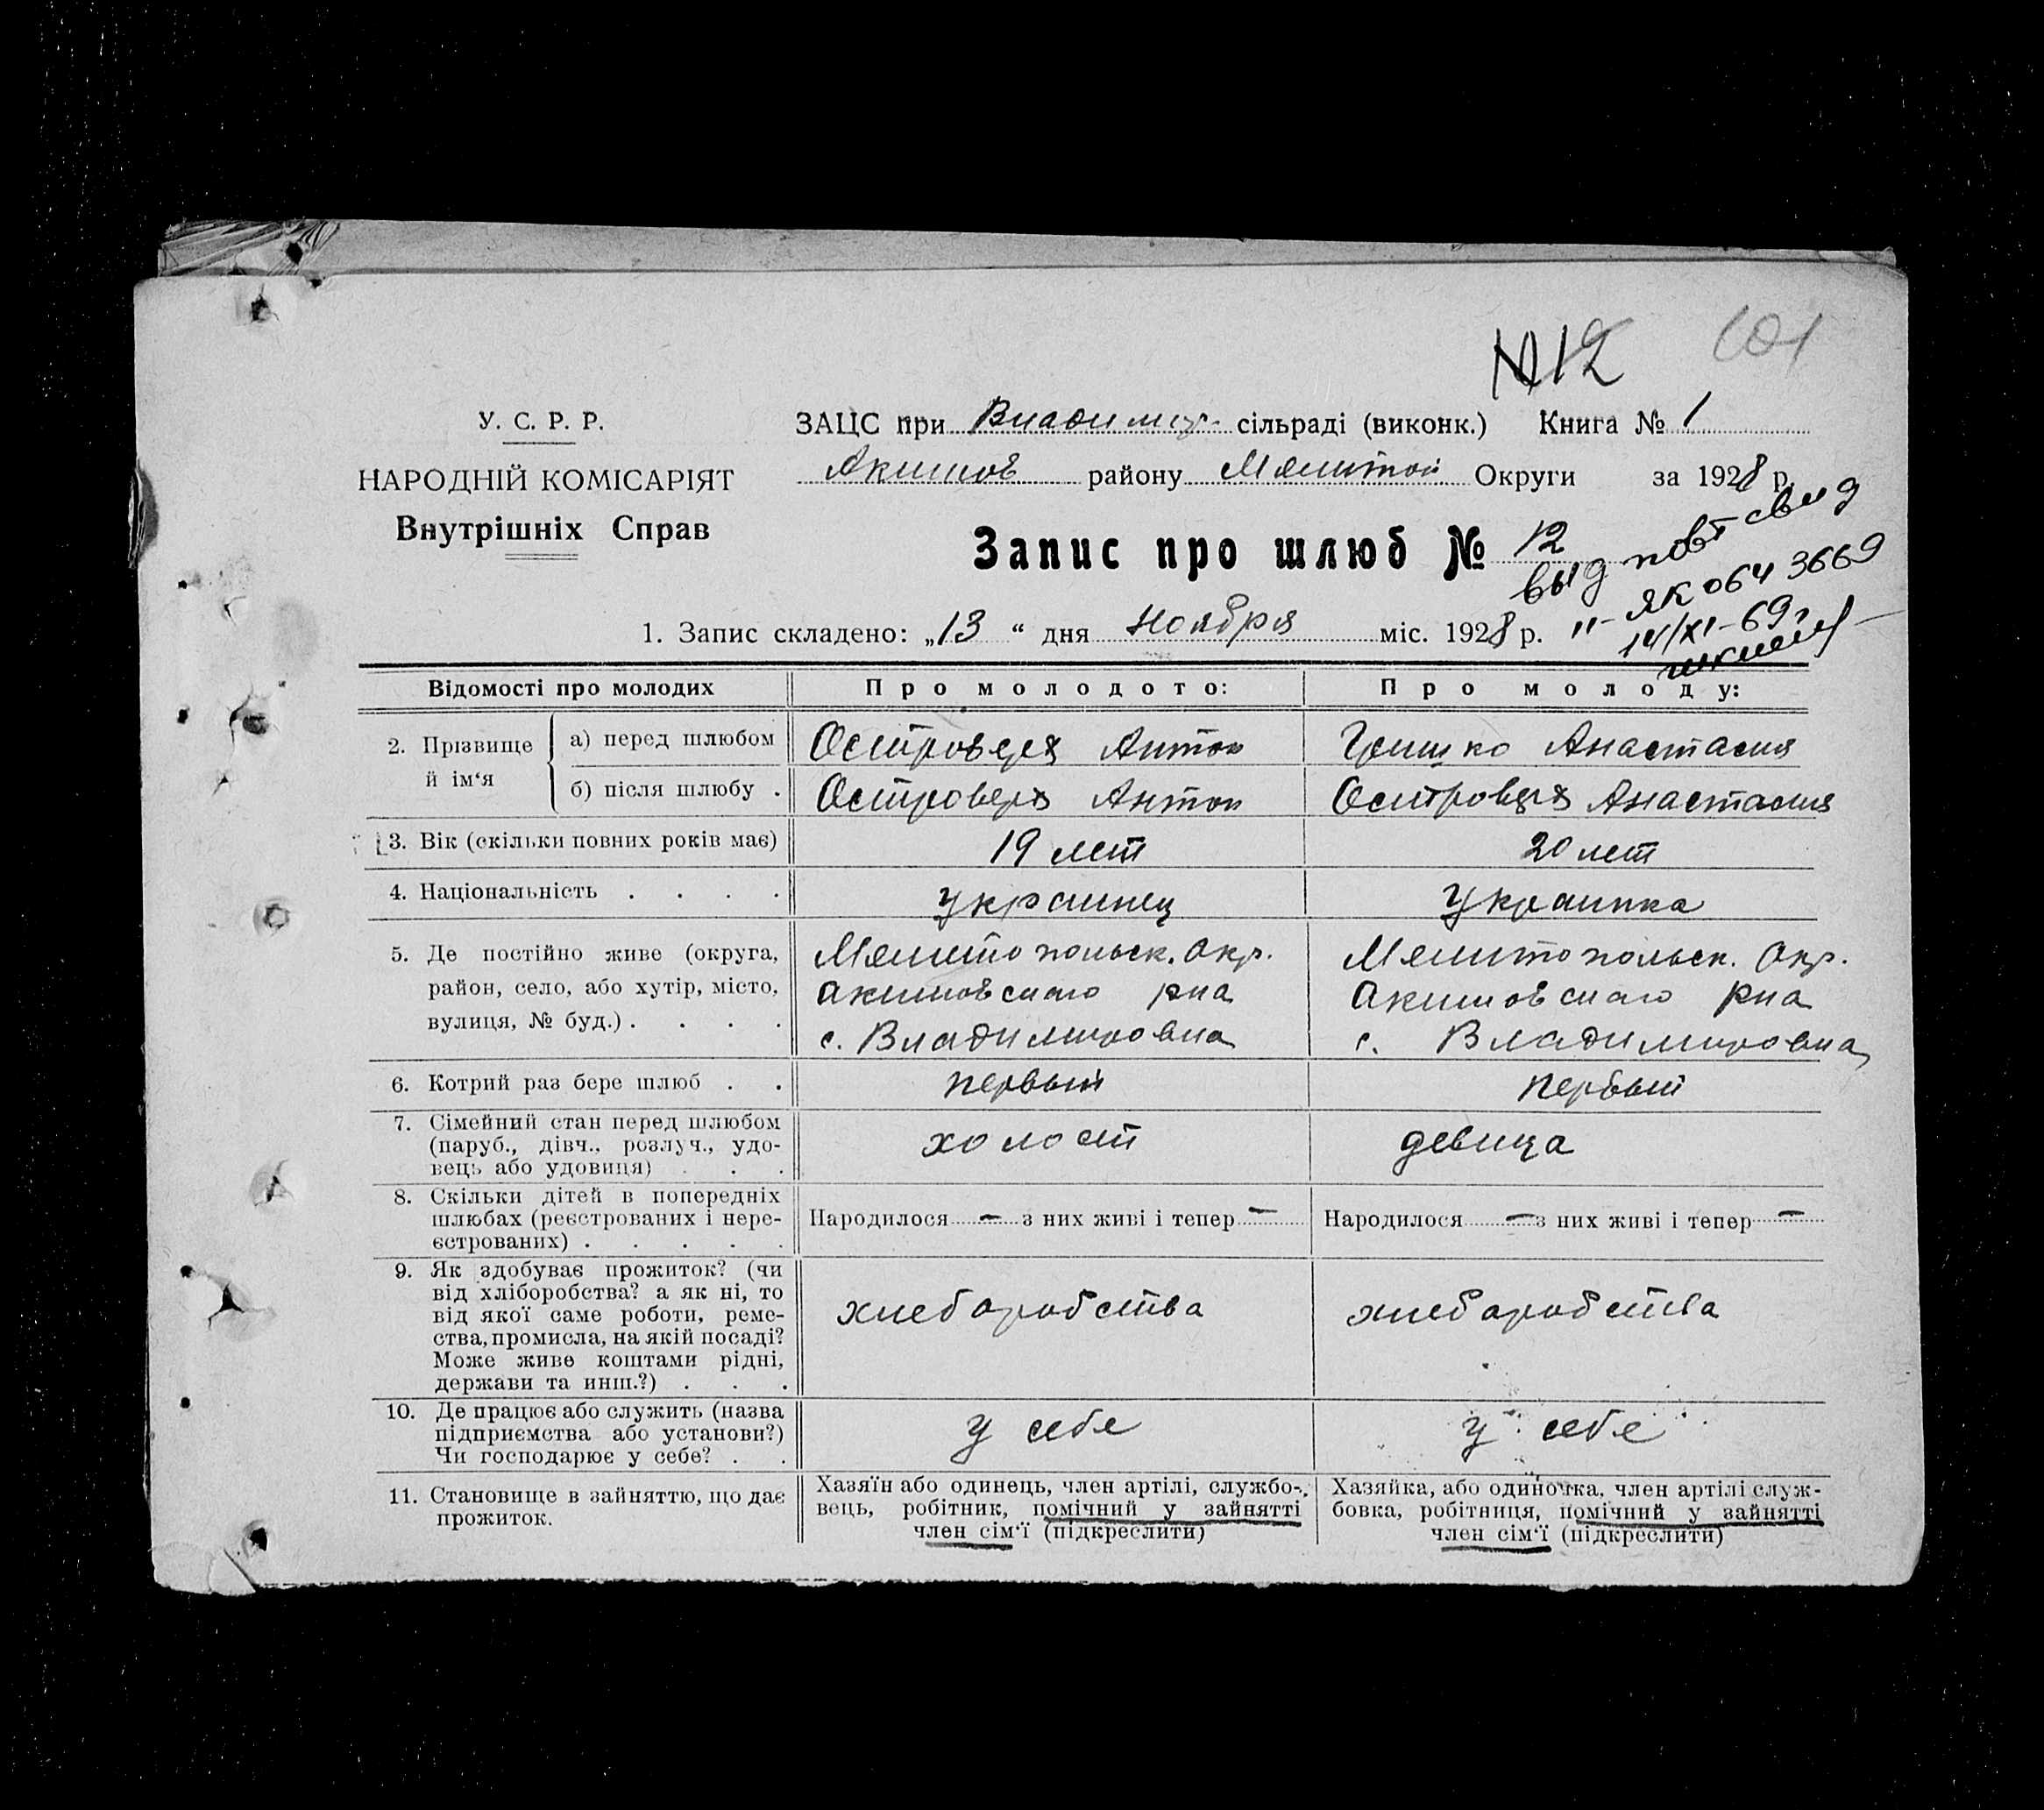 №12 101
У. С. Р. Р.
НАРОДНІЙ КОМІСАРІЯТ
Внутрішніх Справ
ЗАЦС при Владимир- сільраді (виконк.) Книга № 1
Акимов району Мелитоп Округи за 1928 р.
Запис про шлюб № 12
выд повт свид
ЯК 064 3669
14/XI-69г
1. Запис складено: „13 “ дня ноября міс. 1928 р.
Відомості про молодих Про молодого: Про молоду:
2. Прізвище й ім‘я
а) перед шлюбом Островерх Антон Гришко Анастасия
б) після шлюбу . Островерх Антон Островерх Анастасия
3. Вік (скільки повних років має) 19 лет 20 лет
4. Національність . . . . украинец украинка
5. Де постійно живе (округа, Мелитопольск. Окр. Мелитопольск. Окр.
район, село, або хутір, місто, Акимовского рна Акимовского рна
вулиця, № буд.) . . . . с. Владимировка с. Владимировка
6. Котрий раз бере шлюб . . первый первый
7. Сімейний стан перед шлюбом
(паруб., дівч., розлуч., удо- холост девица
вець або удовиця) . . .
8. Скільки дітей в попередніх
шлюбах (реєстрованих і нере- Народилося — з них живі і тепер — Народилося — з них живі і тепер —
єстрованих) . . . . .
9. Як здобуває прожиток? (чи
від хліборобства? а як ні, то
від якої саме роботи, реме- хлеборобства хлеборобства
ства, промисла, на якій посаді?
Може живе коштами рідні,
держави та инш.?) . . .
10. Де працює або служить (назва
підприємства або установи?) у себе у себе
Чи господарює у себе? . .
11. Становище в зайняттю, що дає
прожиток.
Хазяїн або одинець, член артілі, службо-
вець, робітник, помічний у зайнятті
член сім‘ї (підкреслити)
Хазяйка, або одиночка, член артілі служ-
бовка, робітниця, помічний у зайнятті
член сім‘ї (підкреслити)